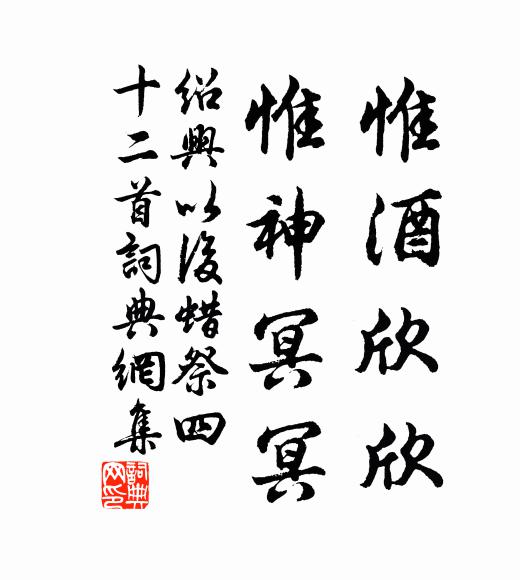 惟酒欣欣
惟神冥冥
紹興以後蜡祭四
十二首詞典網集
詞典網印